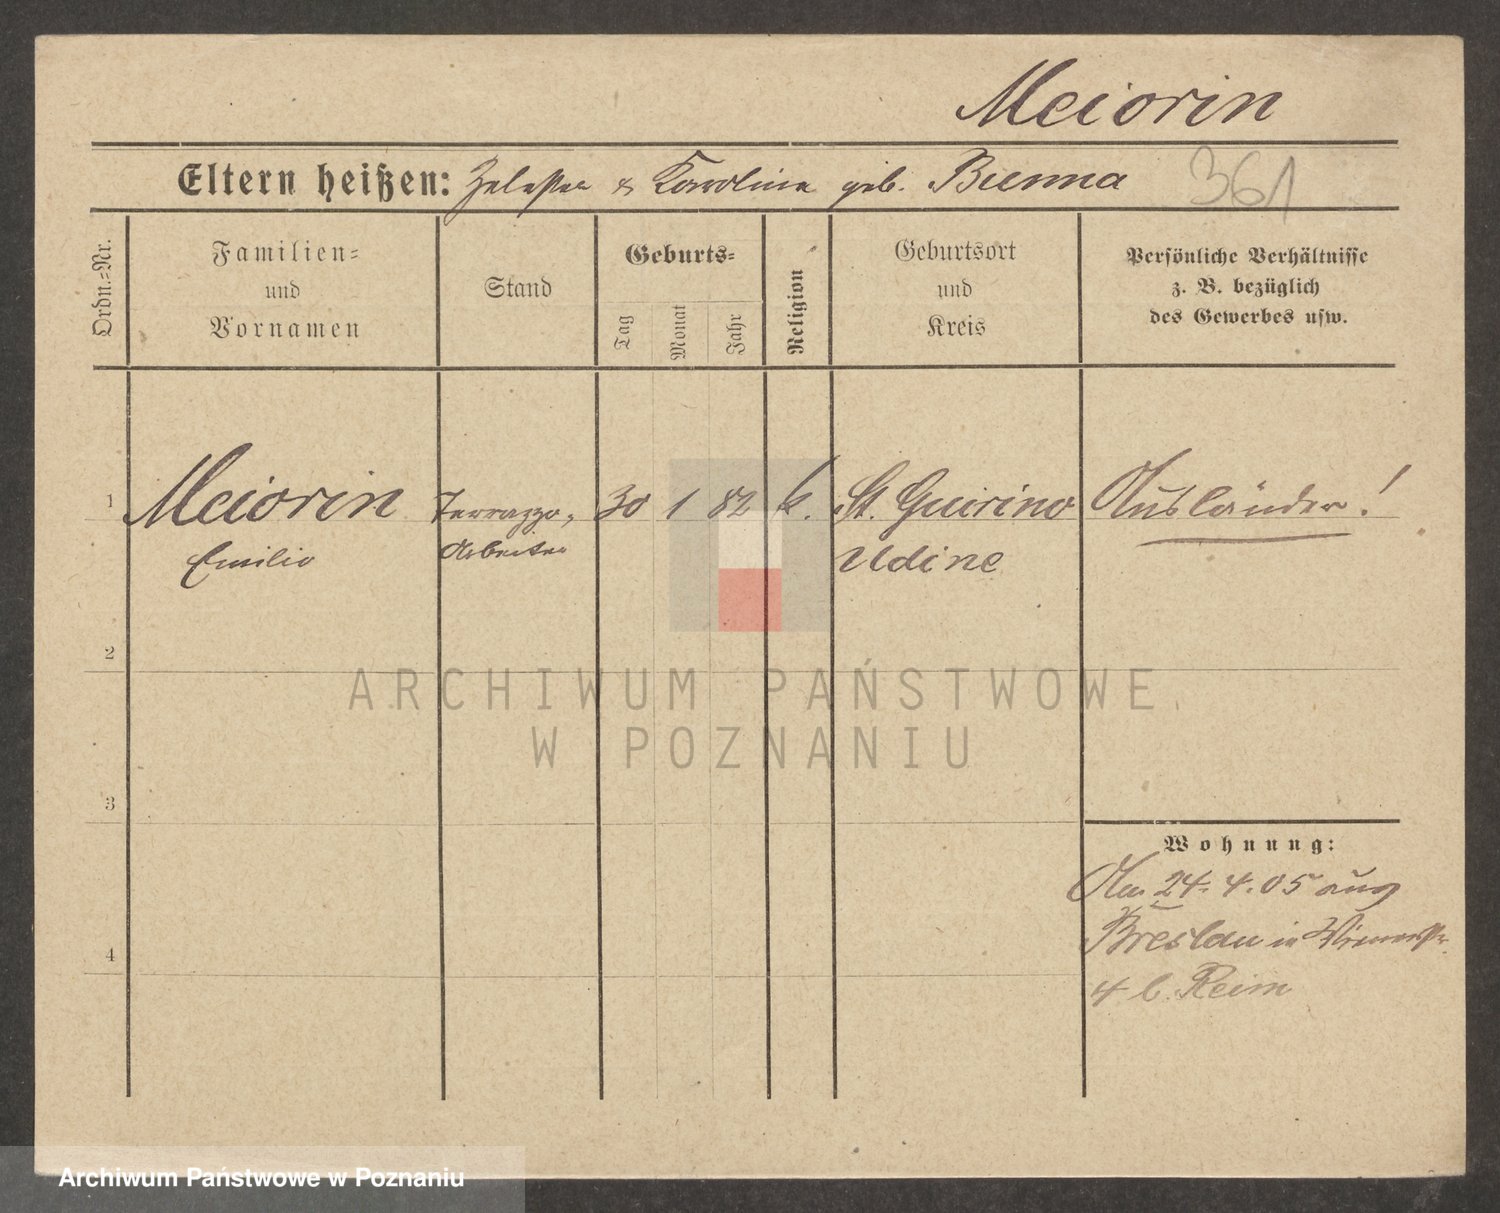 Meiorin
Eltern heißen: & Karolina geb. Buenna
361
Ordn.-Nr.
Familien-
und
Vornamen
Stand
Geburts-
Tag
Monat
Jahr
Religion
Geburtsort
und
Kreis
Persönliche Verhältnisse
z. B. bezüglich
des Gewerbes usw.
1 Meiorin Terrazzo- 30 1 82 k. St. Guirino Ausländer!
Emilio Arbeiter Udine
2
ARCHIWUM PAŃSTWOWE
W POZNANIU
3
Wohnung:
24. 4. 05 aus
4 Breslau in
4 b. Reim
Archiwum Państwowe w Poznaniu